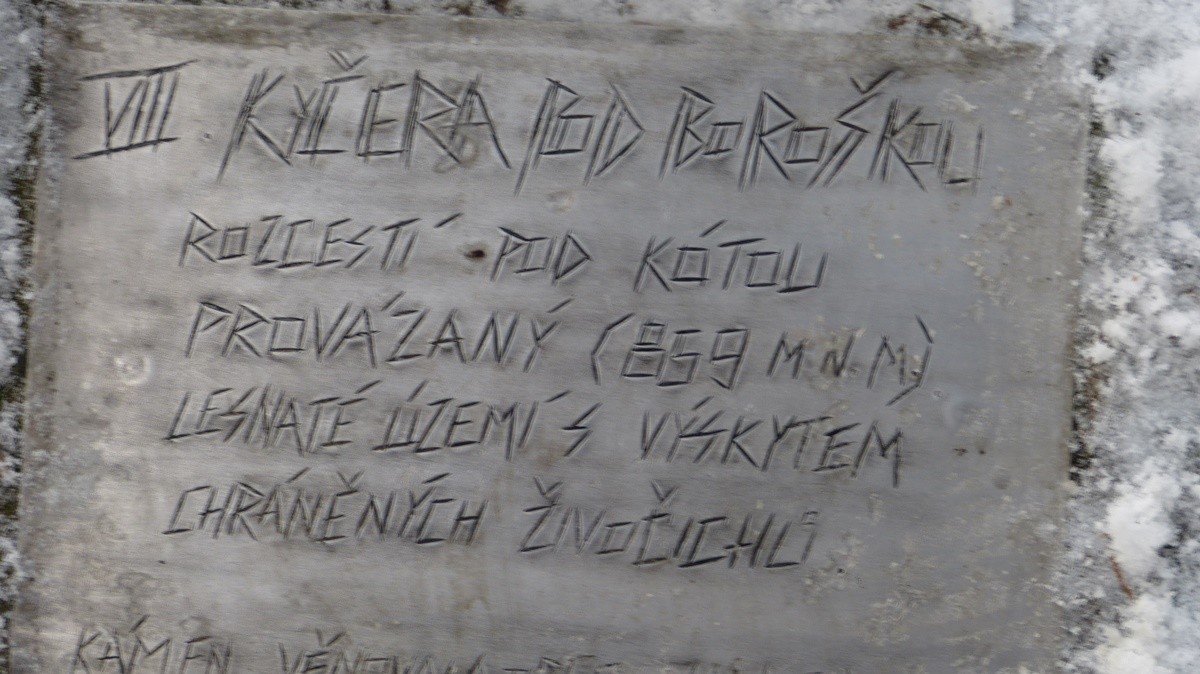 VII. KYČERA POD BOROŠKOU
ROZCESTÍ POD KÓTOU
PROVÁZANÝ (859 M.N.M)
LESNATÉ ÚZEMÍ S VÝSKYTEM
CHRÁNĚNÝCH ŽIVOČICHŮ
KÁMEN